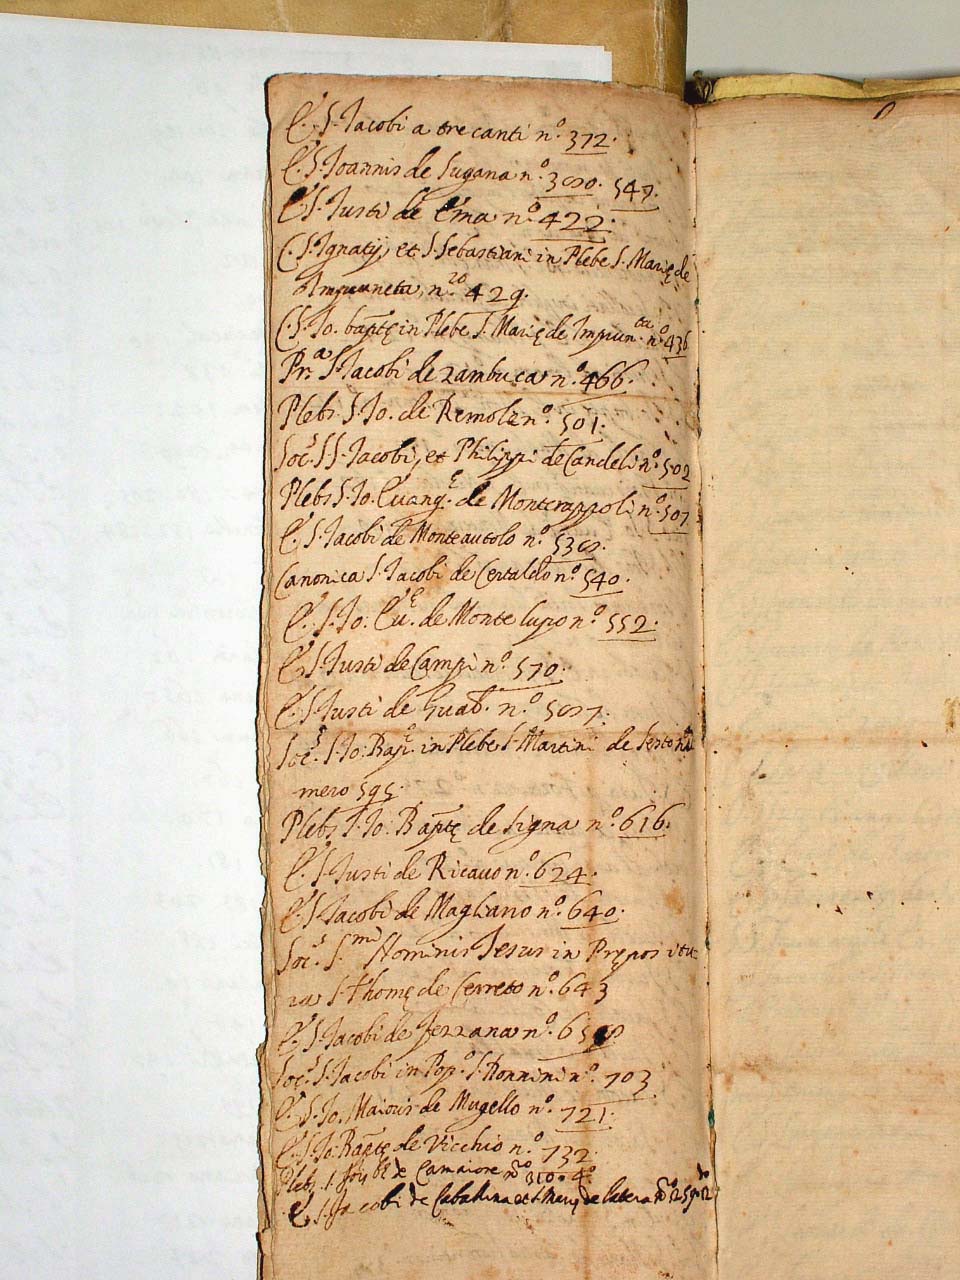 E.ª S. Jacobi a tre canti n.º 372.
E.ª S. Joannis de Sugana n.º 380. 547.
E.ª S. Justi de Ema n.º 422.
C. S. Ignatij, et S. Sebastiani in Plebe S. Marię de
Impruneta, n.º 429.
C. S. Jo. baptę in Plebe S. Marię de Imprun.ta n.º 436
Pr.ª S. Jacobi de Zambuca n.º 466.
Plebs. S. Jo. de Remole n.º 501.
Soc.s SS. Jacobi, et Philippi de Candeli n.º 502
Plebs S. Jo. Evang.e de Monterappoli n.º 507
E.ª S. Jacobi de Monteautolo n.º 538.
Canonica S. Jacobi de Certaldo n.º 540.
E.ª S. Jo: Eu.e de Monte lupo n.º 552.
E.ª S. Justi de Campi n.º 570.
E.ª S. Justi de Gual. n.º 587.
Soc.s S. Jo: Bap.e in Plebe S. Martini de Sesto nu
mero 595.
Plebs S. Jo: Baptę de Signa n.º 616.
E.ª S. Justi de Ricavo n.º 624.
E.ª S. Jacobi de Magliano n.º 640.
Soc.s S.mi Nominis Jesus in Prępositu
ra S. Thomę de Cerreto n.º 643
E.ª S. Jacobi de Ferrana n.º
Soc.s S. Jacobi in Pop.º S. Donnini n.º 703
E.ª S. Jo. Maioris de Mugello n.º 721.
E.ª S. Jo: Baptę de Vicchio n.º 732.
Plebs. S. de Camaiore n.º 310.
E.ª S. Jacobi de Caballina et S. Marię de Latera n.º